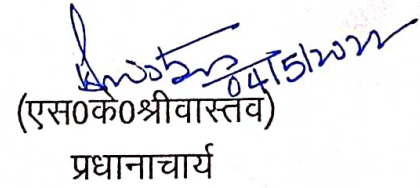 04/5/2022
(एस0के0श्रीवास्तव)
प्रधानाचार्य